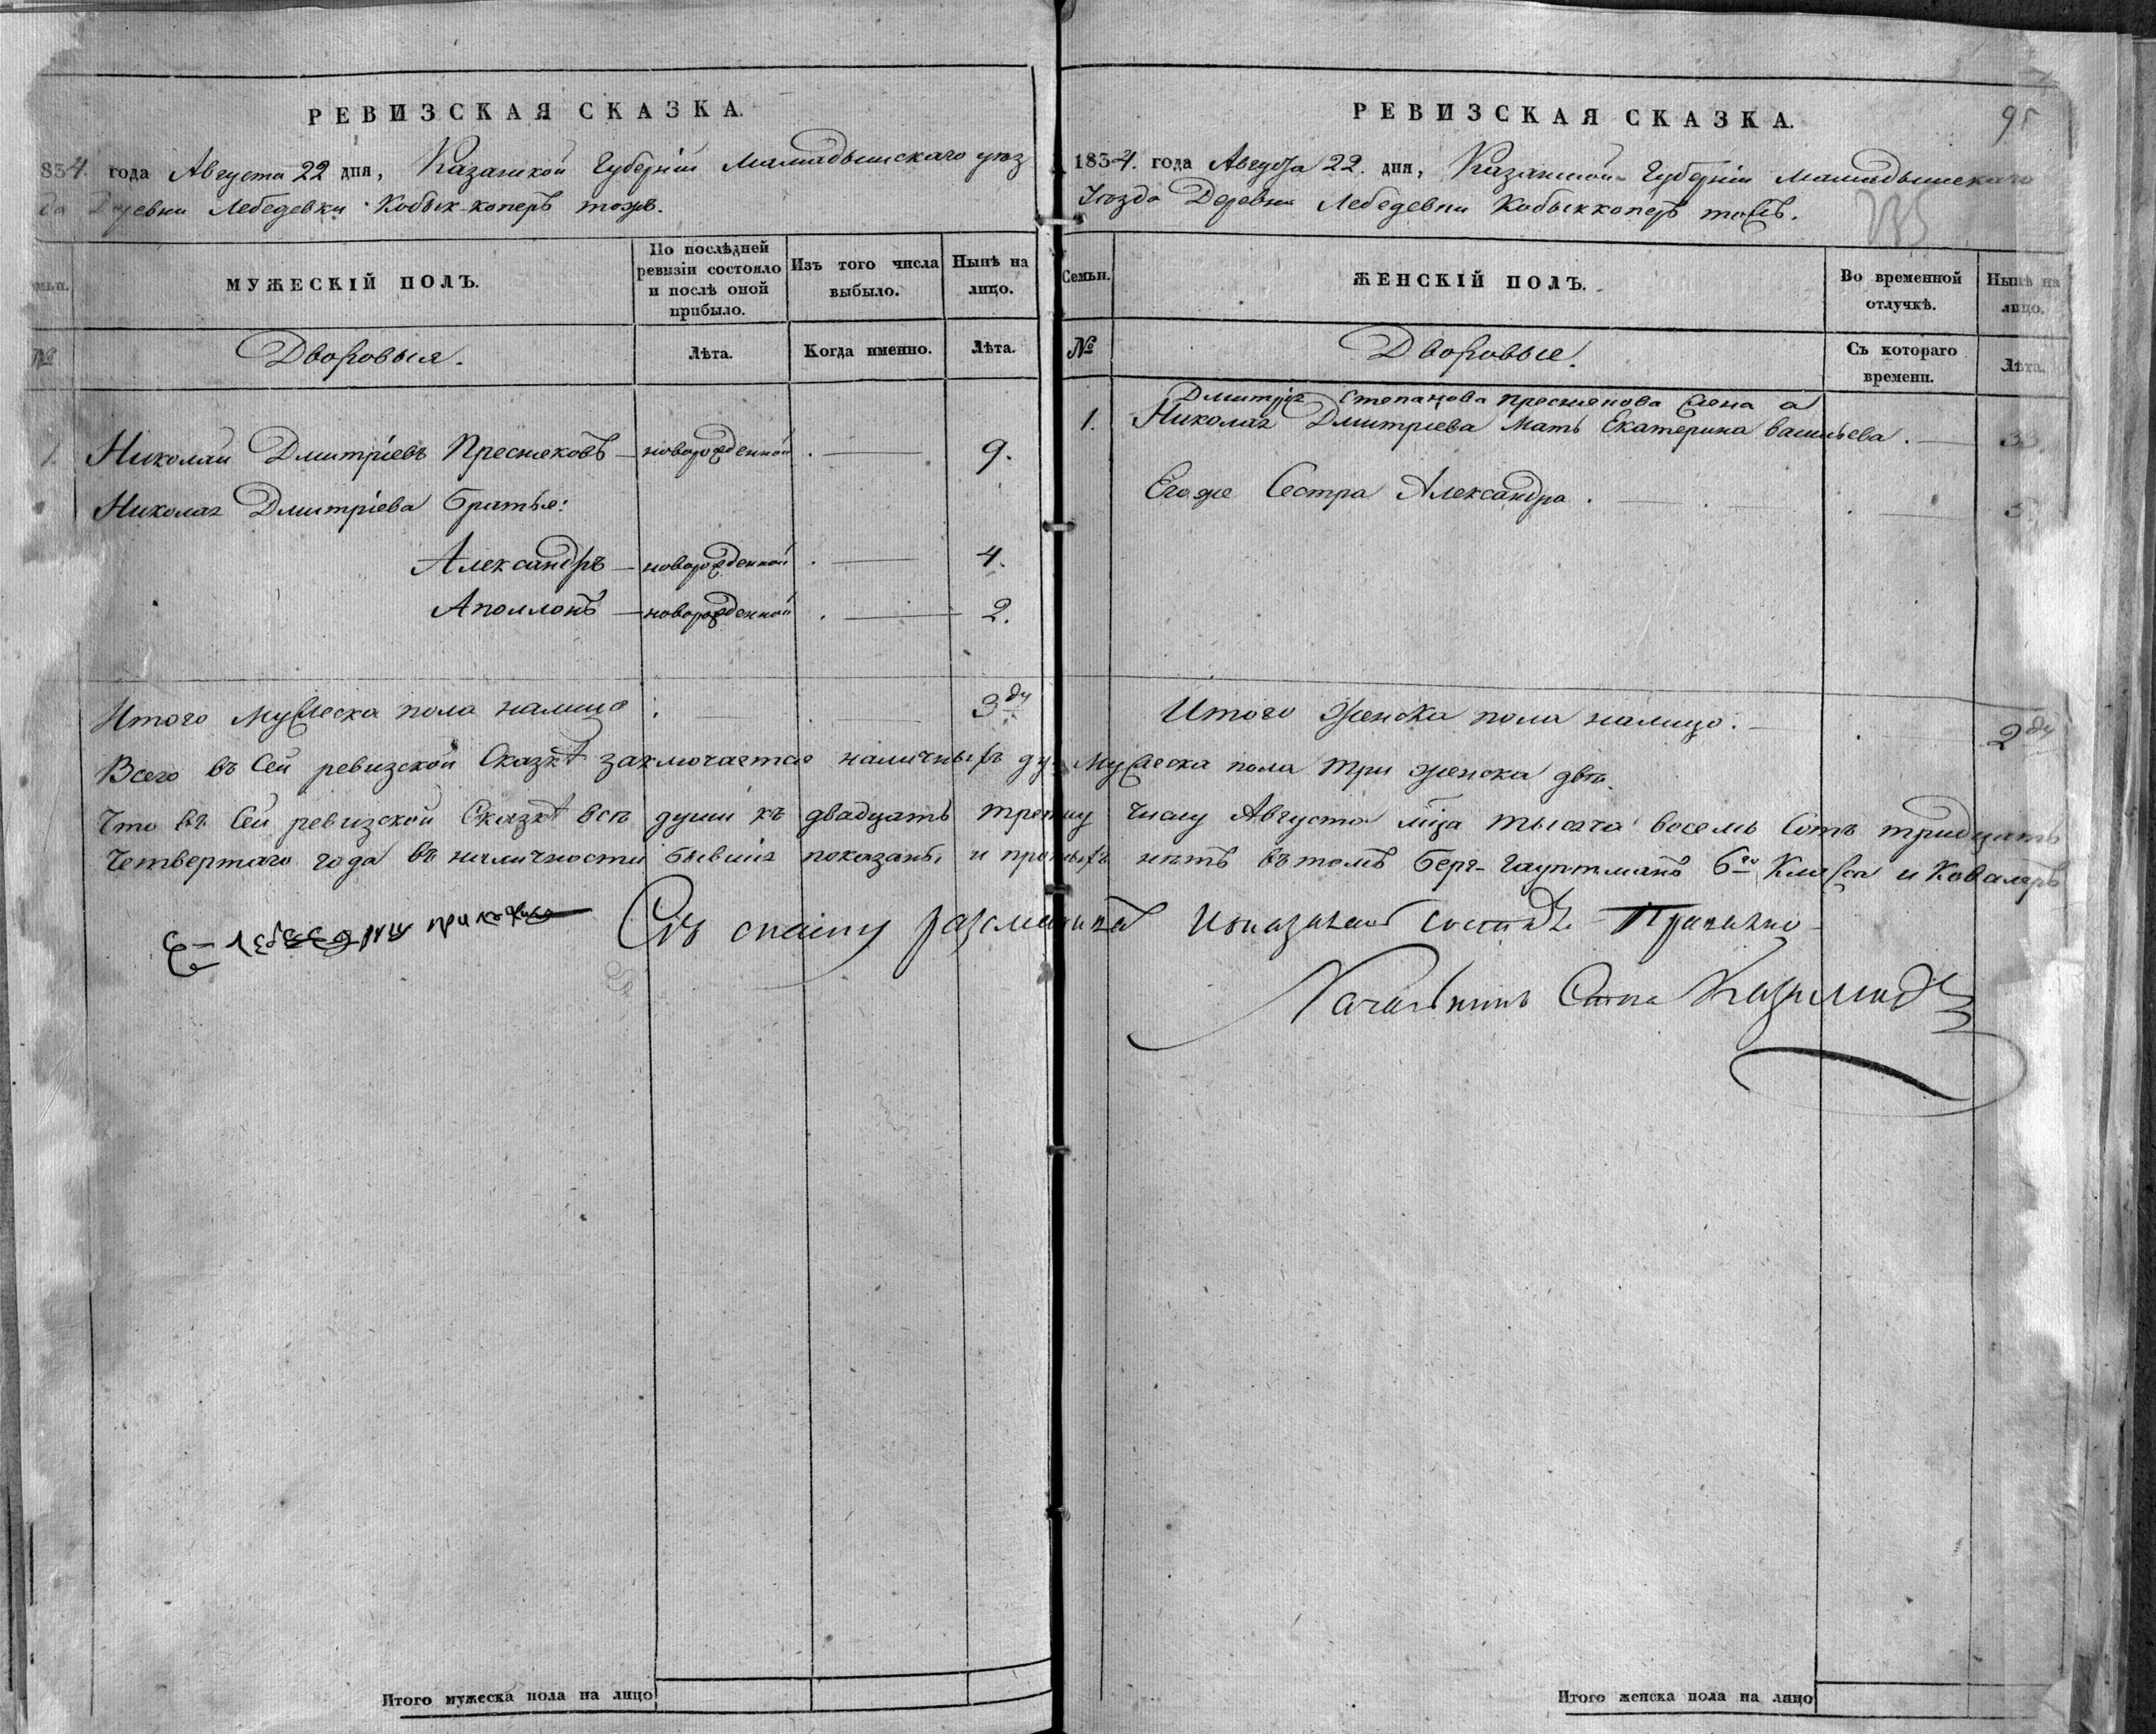 РЕВИЗСКАЯ СКАЗКА.
834. года Августа 22 дня, Казанской Губернiи Мамадышскаго уѣз
да Деревни Лебедевки Кобык-коперъ тожъ.
МУЖЕСКІЙ ПОЛЪ.
По послѣдней ревизіи состояло и послѣ оной прибыло.
Изъ того числа выбыло.
Нынѣ на лицо.
№
Дворовыя.
Лѣта.
Когда именно.
Лѣта.
1. Николай Дмитріевъ Пресняковъ — новорожденной . — 9.
Николая Дмитріева братья:
Александръ — новорожденной . — 4.
Аполлонъ — новорожденной . — 2.
Итого мужеска пола налицо . — 3 ду
РЕВИЗСКАЯ СКАЗКА.
95
1834. года Августа 22. дня, Казанской Губернiи Мамадышскаго
Уѣзда Деревни Лебедевки Кобыккоперъ тожъ.
Семьи.
ЖЕНСКІЙ ПОЛЪ.
Во временной отлучкѣ.
Нынѣ на лицо.
№
Дворовые.
Съ котораго времени.
Лѣта.
Дмитрія Степанова Преснякова жена а
1. Николая Дмитріева Мать Екатерина Васильева . — 33.
Егоже Сестра Александра . —
Итого женска пола налицо . — 2 ду
Всего въ Сей ревизской Сказкѣ заключается наличныхъ ду. Мужеска пола три женска двѣ.
Что въ Сей ревизской Сказкѣ всѣ души къ двадцать третьему числу Августа мца тысяча восемь Сотъ тридцать
Четвертаго года въ наличности бывшiя показаны, и прописныхъ нѣтъ въ томъ Берг-гауптманъ 6го Класса и Кавалеръ
руку приложилъ
Сiю сказку разсматривалъ и показанiе
Итого мужеска пола на лицо
Итого женска пола на лицо